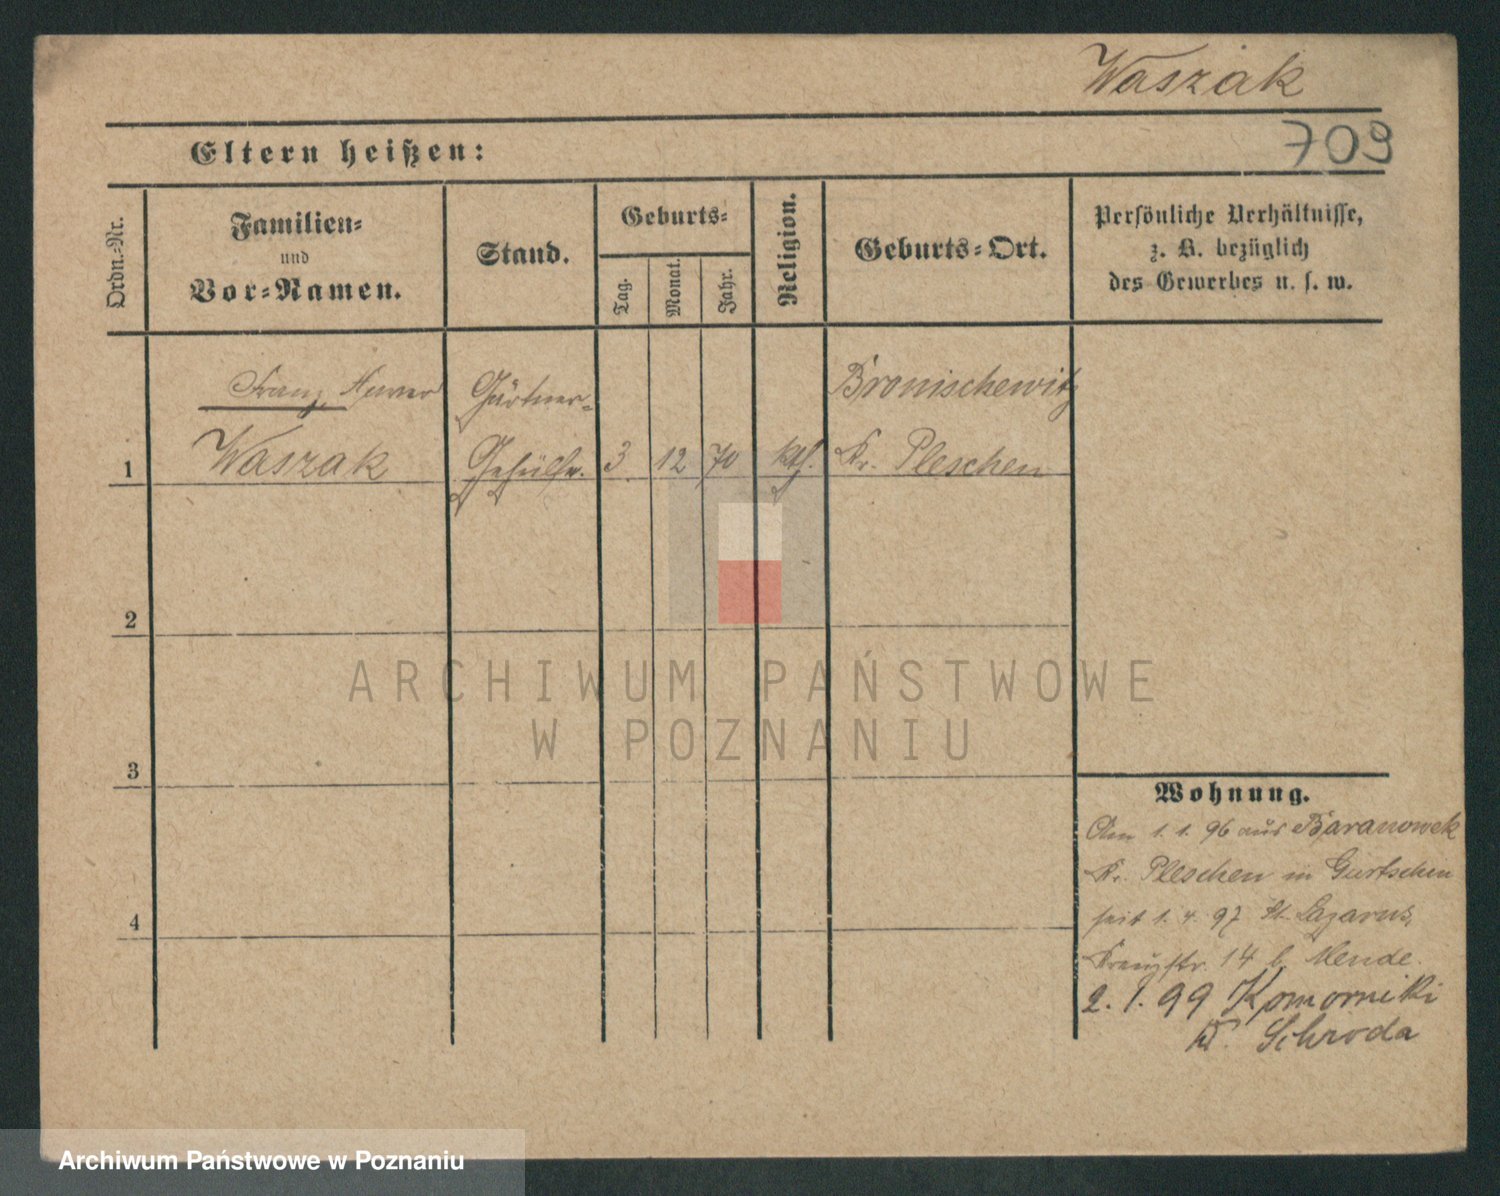 Waszak
709
Eltern heißen:
Ordn.-Nr.
Familien-
und
Vor-Namen.
Stand.
Geburts-
Tag.
Monat.
Jahr.
Religion.
Geburts-Ort.
Persönliche Verhältnisse,
z. B. bezüglich
des Gewerbes u. s. w.
Franz
Gärtner-
Bronischewitz
1
Waszak
Gehülfe.
3
12
70
kth.
Kr. Pleschen
2
3
4
Wohnung.
Am 1. 1. 96 aus Baranowek
Kr. Pleschen in Gurtschin
seit 1. 4. 97 St. Lazarus,
Kreuzstr. 14 b. Mende.
2. 1. 99 Komorniki
Kr. Schroda
ARCHIWUM PAŃSTWOWE
W POZNANIU
Archiwum Państwowe w Poznaniu